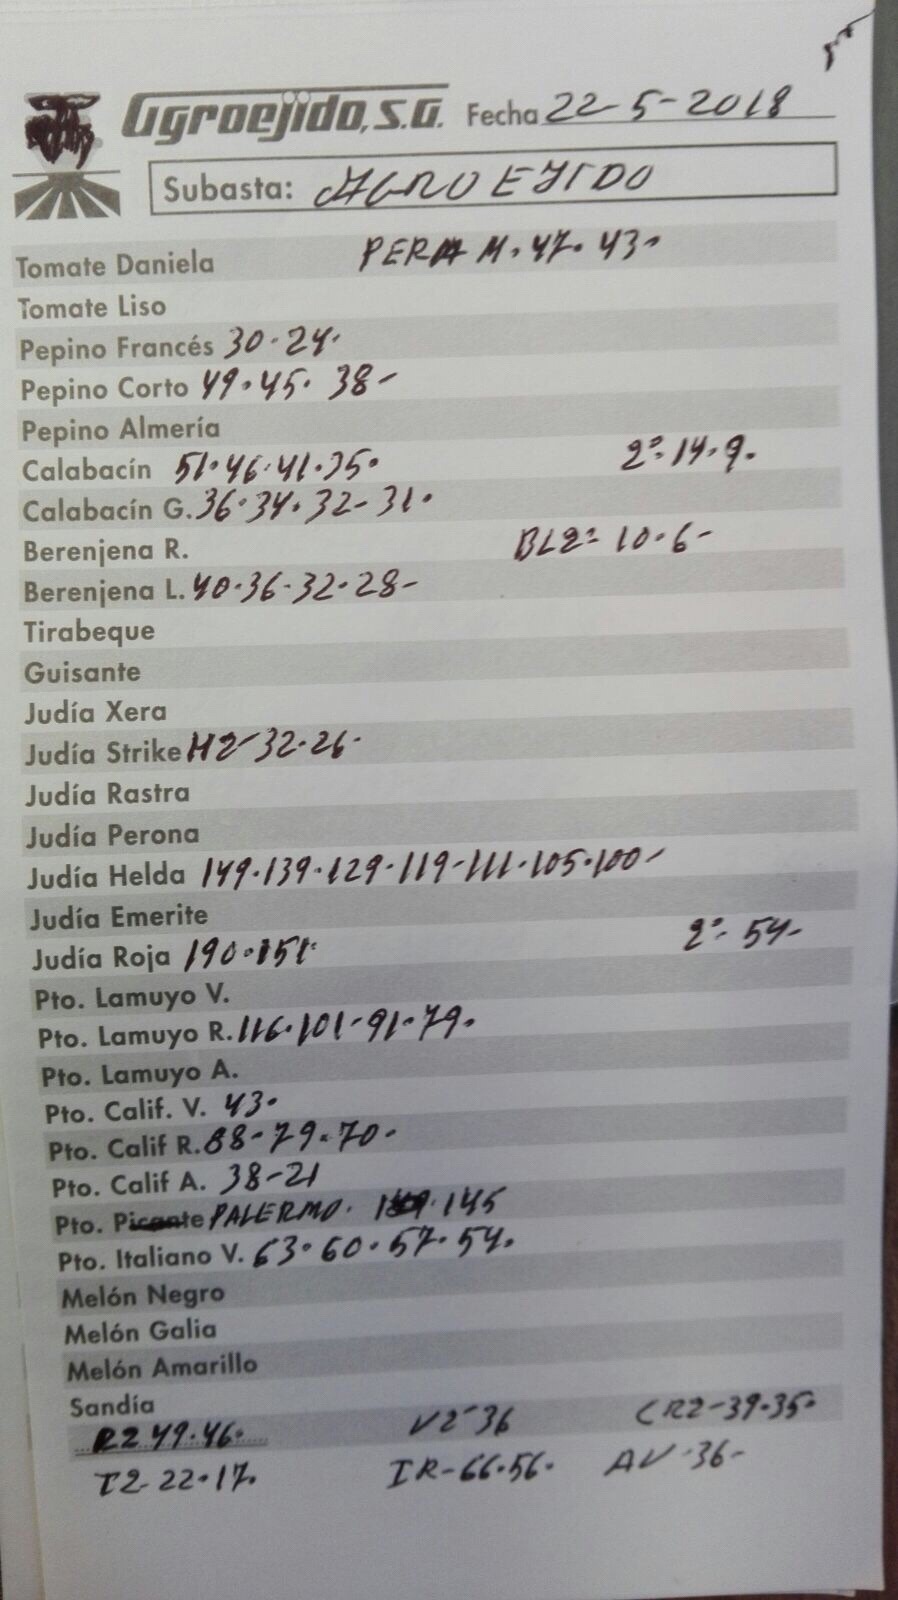 Agroejido, S.A. Fecha 22-5-2018
Subasta: AGROEJIDO
Tomate Daniela PERA M. 47. 43.
Tomate Liso
Pepino Francés 30.24.
Pepino Corto 49.45. 38-
Pepino Almería
Calabacín 51.46.41.35. 2ª 14.9.
Calabacín G. 36.34.32-31.
Berenjena R. BL2= 10.6-
Berenjena L. 40.36.32.28-
Tirabeque
Guisante
Judía Xera
Judía Strike H2-32.26.
Judía Rastra
Judía Perona
Judía Helda 149.139.129.119-111.105.100-
Judía Emerite
Judía Roja 190.151. 2ª- 54-
Pto. Lamuyo V.
Pto. Lamuyo R. 116.101-91.79.
Pto. Lamuyo A.
Pto. Calif. V. 43.
Pto. Calif R. 88-79.70-
Pto. Calif A. 38-21
Pto. Picante PALERMO. 145
Pto. Italiano V. 63.60.57.54.
Melón Negro
Melón Galia
Melón Amarillo
Sandía
R2 49.46. V2-36 CR2-39.35.
T2-22.17. IR-66.56. AV-36-